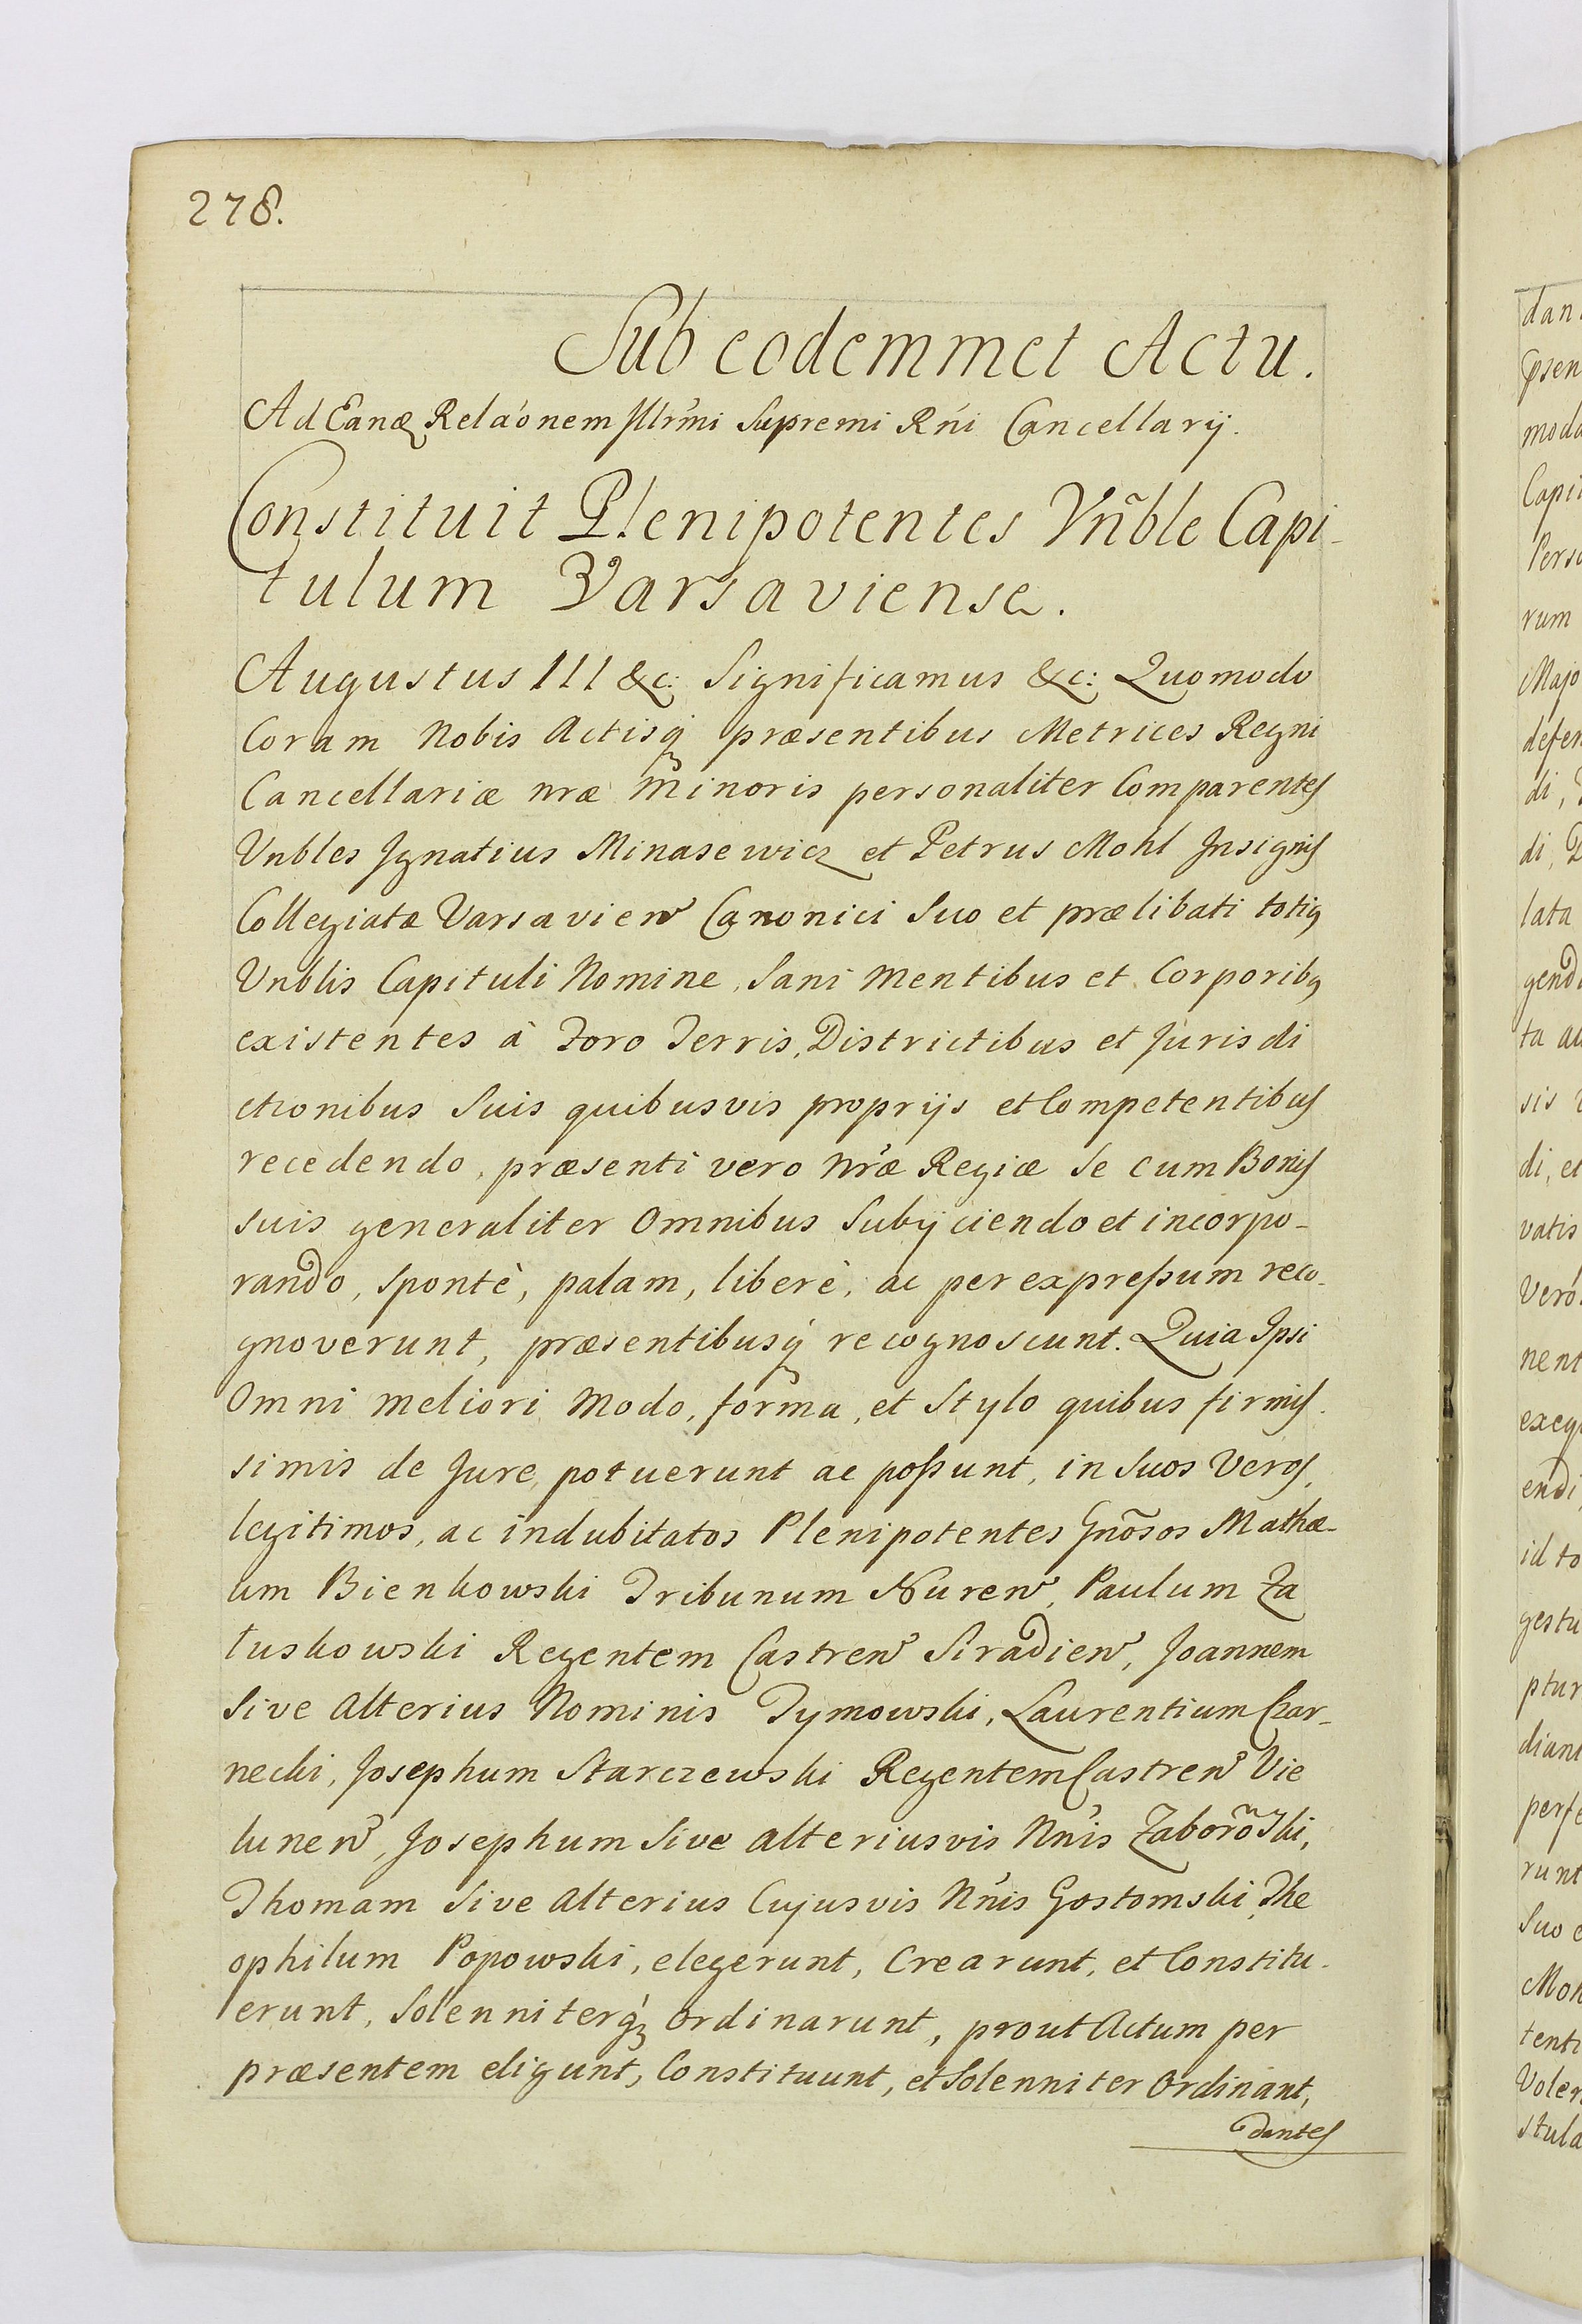 278.
Sub eodemmet Actu.
Ad Eandẽ Relãonem Illr̃mi Supremi Rńi Cancellarij.
Constituit Plenipotentes Vñble Capi-
tulum Varsaviense.
Augustus III &c: Significamus &c: Quomodo
Coram Nobis Actisq̃ præsentibus Metrices Regni
Cancellariæ nræ Minoris personaliter Comparentes
Vnbles Ignatius Minasewicz et Petrus Mohl Insignis
Collegiatæ Varsavien̄ Canonici Suo et prælibati totiꝰ
Vnblis Capituli Nomine, Sani Mentibus et Corporibꝰ
existentes à Foro Terris, Districtibus et Jurisdi
ctionibus Suis quibusvis proprijs et Competentibus
recedendo, præsenti vero Nrá Regiæ Se cum Bonis
suis generaliter Omnibus Subijciendo et incorpo-
rando, spontè, palam, liberè, ac per expreßum reco-
gnoverunt, præsentibusq̃ recognoscunt. Quia Ipsi
Omni meliori Modo, forma, et Stylo quibus firmis-
simis de Jure, potuerunt ac poßunt, in Suos Veros,
legitimos, ac indubitatos Plenipotentes Gnõsos Mathæ-
um Bienkowski Tribunum Nuren̄, Paulum Za
łuskowski Regentem Castren̄ Siradien̄, Joannem
Sive Alterius Nominis Tymowski, Laurentium Czar-
necki, Josephum Starczewski Regentem Castren̄ Vie
lunen̄, Josephum Sive alteriusvis Nńis Zaborõski,
Thomam Sive Alterius Cujusvis Nńis Gostomski, The
ophilum Popowski, elegerunt, Crearunt, et Constitu-
erunt, Solenniterq́ Ordinarunt, prout Actum per
præsentem eligunt, Constituunt, et Solenniter Ordinant,
dantes